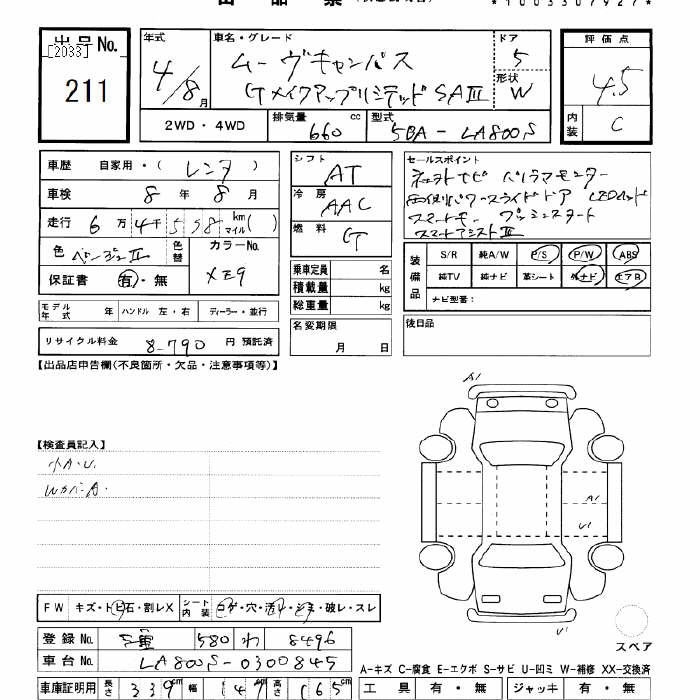 *1003307927*
出品No.
[2033]
211
年式
4/8月
車名・グレード
ムーヴキャンバス
Gメイクアップリミテッド SAⅢ
ドア
5
形状
W
2WD・4WD
排気量
660 cc
型式
5BA-LA800S
評価点
4.5
内装
C
車歴 自家用・(レンタ)
車検 8年8月
走行 6万4千5 km マイル( )
色 ベージュⅡ
色替
カラーNo.
保証書 有・無
モデル年式 年 ハンドル 左・右 ディーラー・並行
リサイクル料金 8,790 円 預託済
シフト AT
冷房 AAC
燃料 G
乗車定員 名
積載量 kg
総重量 kg
名変期限
月 日
セールスポイント
パノラマモニター
両側パワースライドドア
スマートキー プッシュスタート
スマートアシストⅢ
装備品
S/R 純A/W P/S P/W ABS
純TV 純ナビ 革シート 外ナビ エアB
ナビ型番:
後日品
【出品店申告欄(不良箇所・欠品・注意事項等)】
【検査員記入】
小A・U.
WカバーA.
A1
A1
U1
U1
スペア
FW キズ・トビ石・割レX シート内装 コゲ・穴・汚レ・シミ・破レ・スレ
登録No. 三重 580 わ 8496
車台No. LA800S-0300845
A-キズ C-腐食 E-エクボ S-サビ U-凹ミ W-補修 XX-交換済
車庫証明用 長さ 339cm 幅 147cm 高さ 165cm
工具 有・無 ジャッキ 有・無